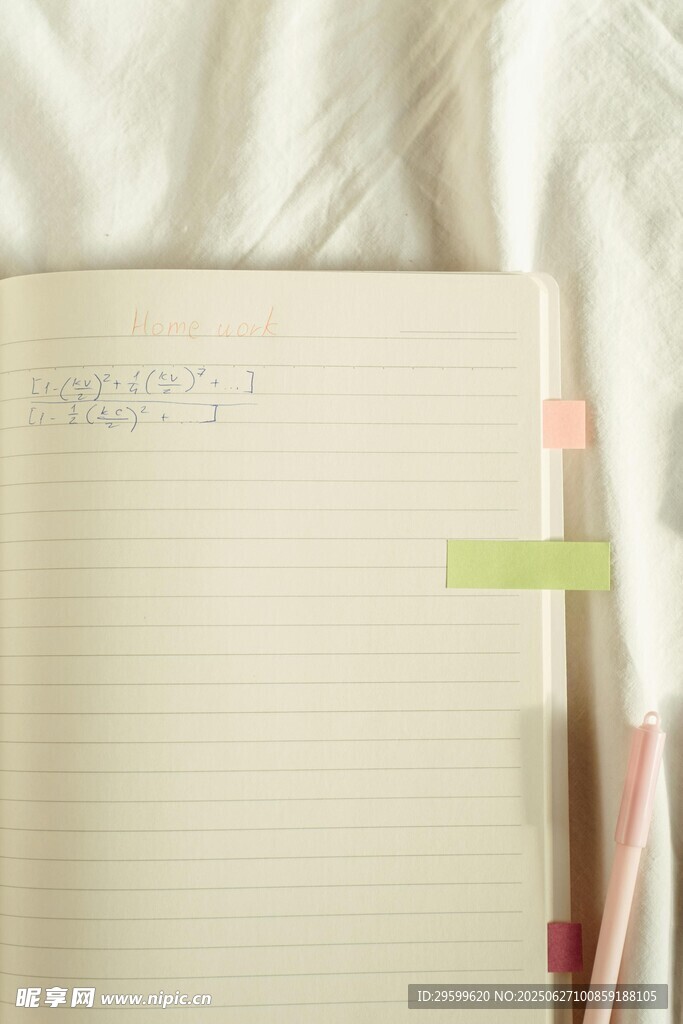 Home work
[1-(kv/2)²+1/4(kv/2)⁷+...]
[1-1/2(kc/2)²+...]
昵享网 www.nipic.cn
ID:29599620 NO:20250627100859188105